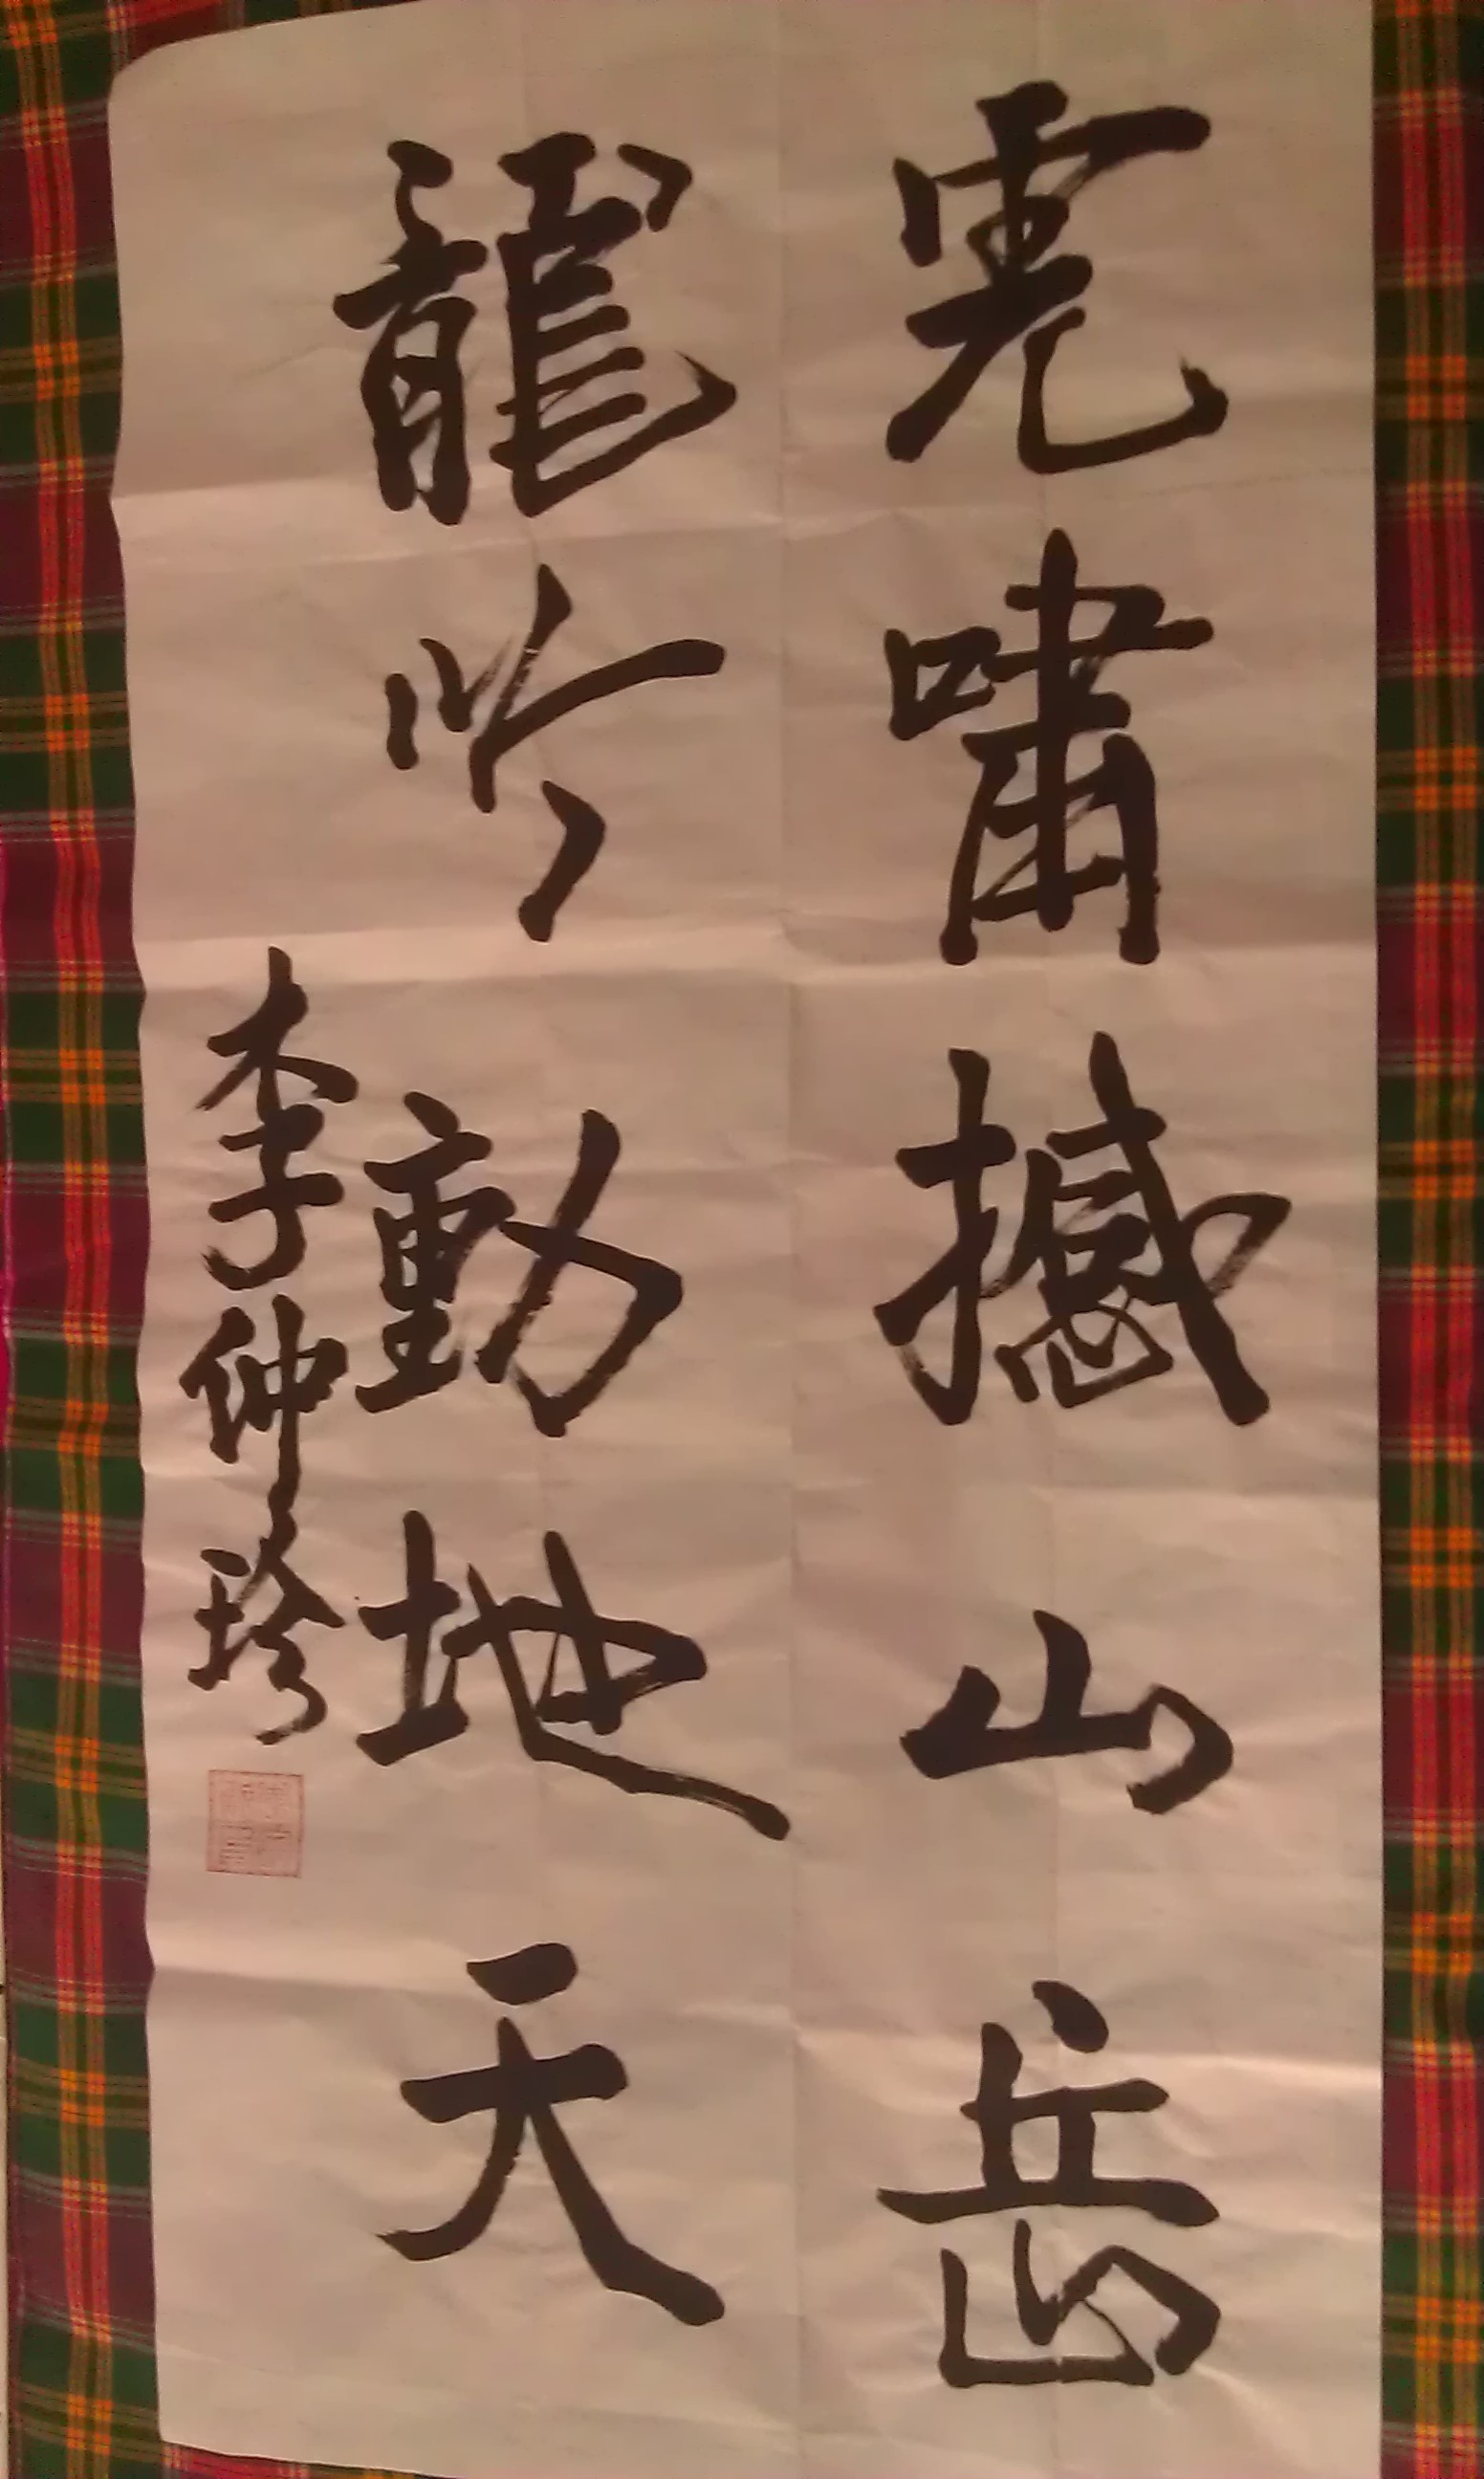 虎嘯撼山岳
龍吟動地天
李仲珍